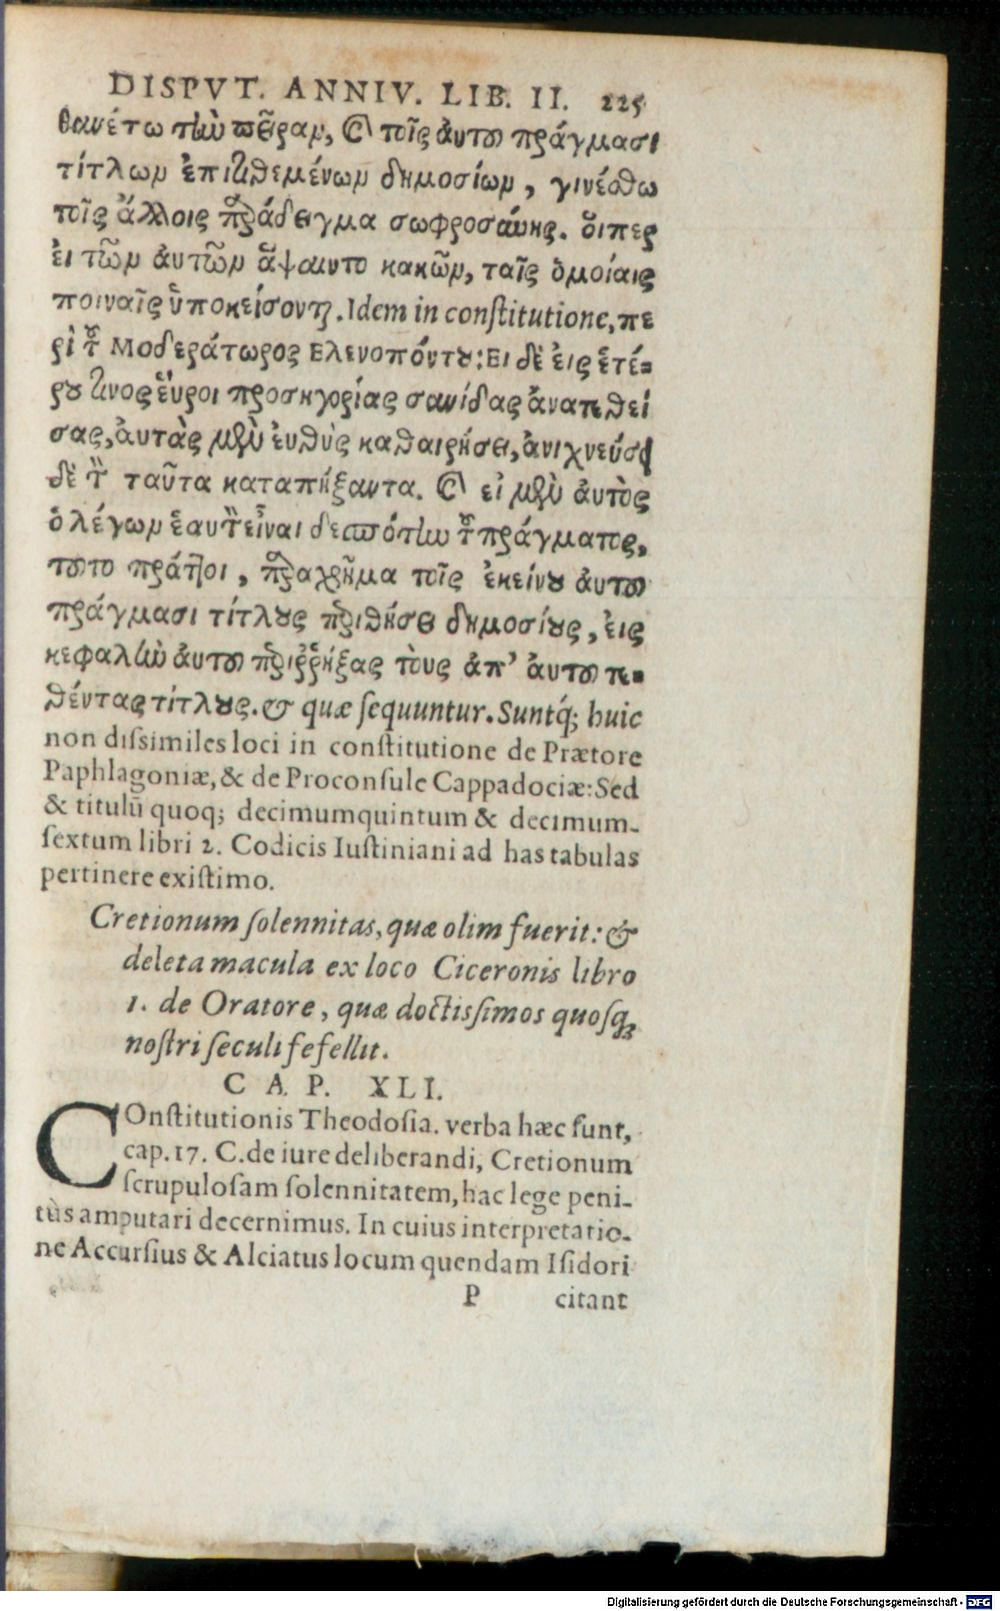 DISPVT. ANNIV. LIB. II. 225
θανέτω τὴν πεῖραν, καὶ τοῖς αὐτοῦ πράγμασι
τίτλων ἐπιτιθεμένων δημοσίων, γινέσθω
τοῖς ἄλλοις παράδειγμα σωφροσύνης. οἵπερ
εἰ τῶν αὐτῶν ἅψαιντο κακῶν, ταῖς ὁμοίαις
ποιναῖς ὑποκείσονται. Idem in conſtitutione, πε
ρὶ τοῦ Μοδεράτωρος Ελενοπόντου: Ει δὲ εἰς ἑτέ-
ρου τινος εὕροι προσηγορίας σανίδας ἀνατεθεί
σας, αὐτὰς μὲν εὐθὺς καθαιρήσει, ἀνιχνεύσει
δὲ τὸν ταῦτα καταπήξαντα. καὶ εἰ μὲν αὐτὸς
ὁ λέγων ἑαυτὸν εἶναι δεσπότην τοῦ πράγματος,
τοῦτο πράττοι, παραχρῆμα τοῖς ἐκείνου αὐτοῦ
πράγμασι τίτλους περιθήσει δημοσίους, εἰς
κεφαλὴν αὐτοῦ περιῤῥήξας τοὺς ἀπ' αὐτοῦ τε-
θέντας τίτλους. & quæ ſequuntur. Suntq; huic
non diſsimiles loci in conſtitutione de Prætore
Paphlagoniæ, & de Proconſule Cappadociæ: Sed
& titulū quoq; decimumquintum & decimum-
ſextum libri 2. Codicis Iuſtiniani ad has tabulas
pertinere exiſtimo.
Cretionum ſolennitas, quæ olim fuerit: &
deleta macula ex loco Ciceronis libro
1. de Oratore, quæ doctiſsimos quoſq;
noſtri ſeculi fefellit.
CAP. XLI.
COnſtitutionis Theodoſia. verba hæc ſunt,
cap. 17. C. de iure deliberandi, Cretionum
ſcrupuloſam ſolennitatem, hac lege peni-
tùs amputari decernimus. In cuius interpretatio-
ne Accurſius & Alciatus locum quendam Iſidori
P citant
Digitalisierung gefördert durch die Deutsche Forschungsgemeinschaft - DFG